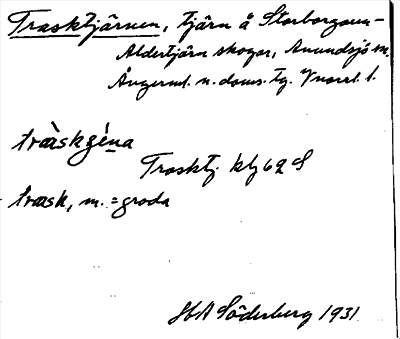 Trasktjärnen, tjärn å Storborgaren-
Aldertjärn skogar, Anundsjö sn.
Ångerml. n. doms. tg. Vnorrl. l.
tràskǵéna
Trasktj. kbl 62 S
trask, m. = groda
HA Söderberg 1931